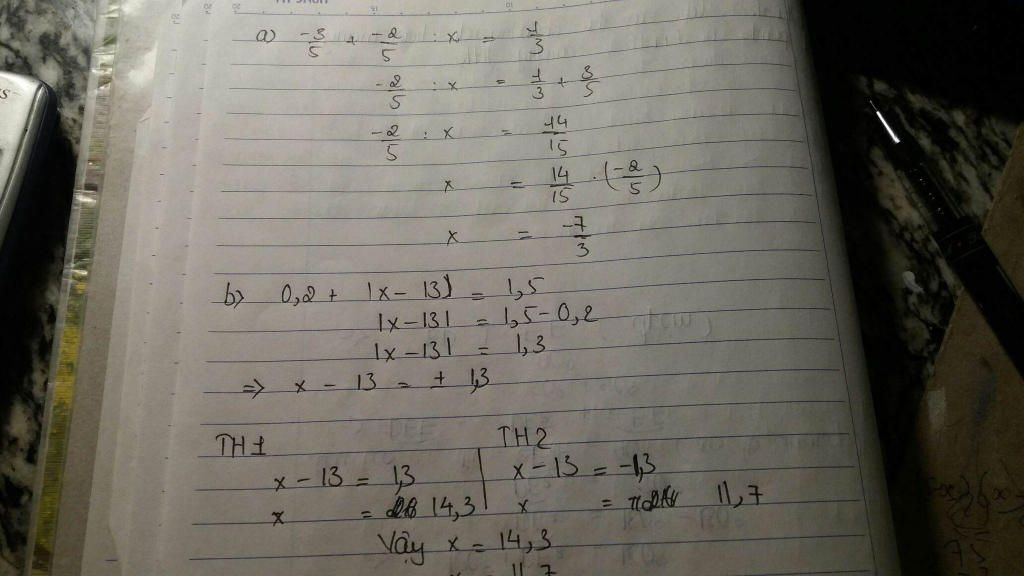 a) -3/5 + -2/5 : x = 1/3
-2/5 : x = 1/3 + 3/5
-2/5 : x = 14/15
x = 14/15 . (-2/5)
x = -7/3
b) 0,2 + |x - 13| = 1,5
|x - 13| = 1,5 - 0,2
|x - 13| = 1,3
=> x - 13 = ± 1,3
TH1
x - 13 = 1,3
x = 14,3
TH2
x - 13 = -1,3
x = 11,7
Vậy x = 14,3
x = 11,7